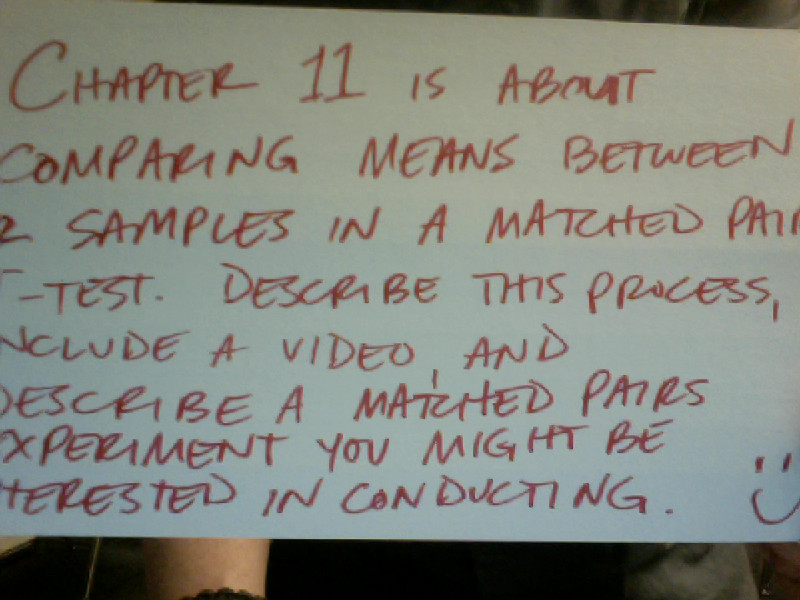 CHAPTER 11 IS ABOUT
COMPARING MEANS BETWEEN
2 SAMPLES IN A MATCHED PAIR
T-TEST. DESCRIBE THIS PROCESS,
INCLUDE A VIDEO, AND
DESCRIBE A MATCHED PAIRS
EXPERIMENT YOU MIGHT BE
INTERESTED IN CONDUCTING. :)